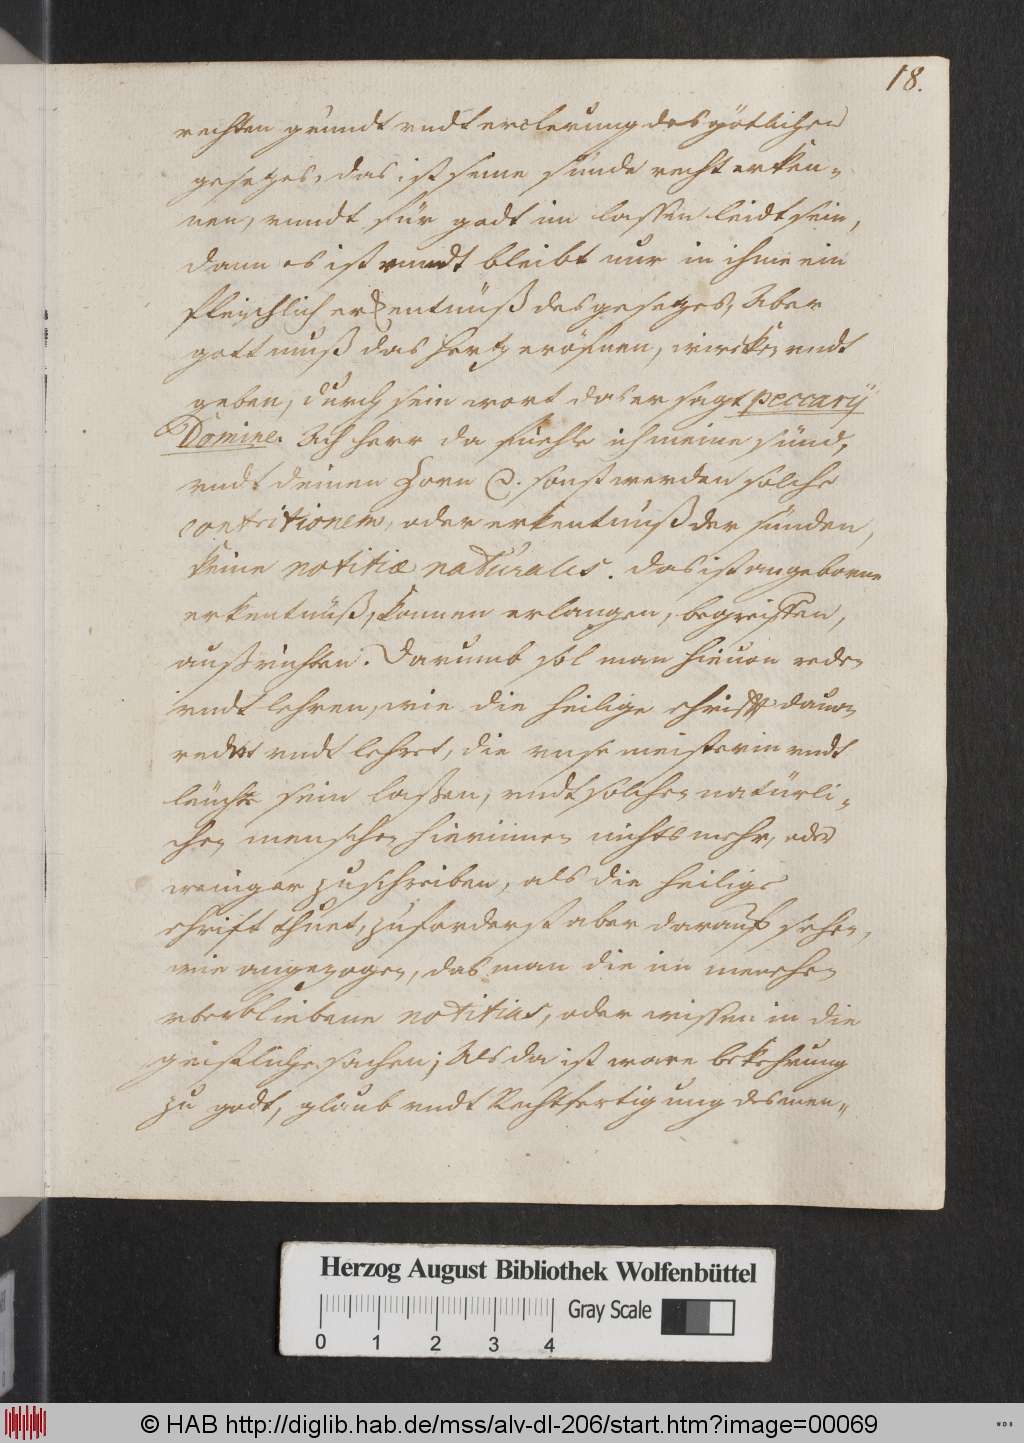 18.
rechten grundt vndt erclerung des götlichen
gesetzes, das ist seine sünde recht erken-
nen, vnndt für godt im lassen leidt sein,
dann es ist vnndt bleibt nur in ihme ein
fleischlich erkentnüß des gesetzes, Aber
gott muß das hertz eröfnen, wircken vndt
geben, durch sein wort das er sagt peccavij
Domine. Ach herr da fuehle ich meine sünd,
vndt deinen Zorn sonst werden solche
contritionem, oder erkentnuß der sünden,
keine notitiæ naturales. das ist angeborne
erkentnüß, können erlangen, begreiffen,
außrichten. Darumb sol man hieuon reden
vndt lehren, wie die heilige schrifft dauon
redet vndt lehret, die vnse meisterin vndt
leuchte sein laßen, vndt solchen natürli-
chen menschen hierinnen nichts mehr, oder
weniger zuschreiben, als die heilige
schrift thuet, zuforderst aber darauf sehen,
wie angezogen, das man die im menschen
vberbliebene notitias, oder wissen in die
geistliche sachen; Als da ist ware bekehrung
zu godt, glaub vndt Rechtfertigung des men-
Herzog August Bibliothek Wolfenbüttel
0 1 2 3 4
Gray Scale
© HAB http://diglib.hab.de/mss/alv-dl-206/start.htm?image=00069